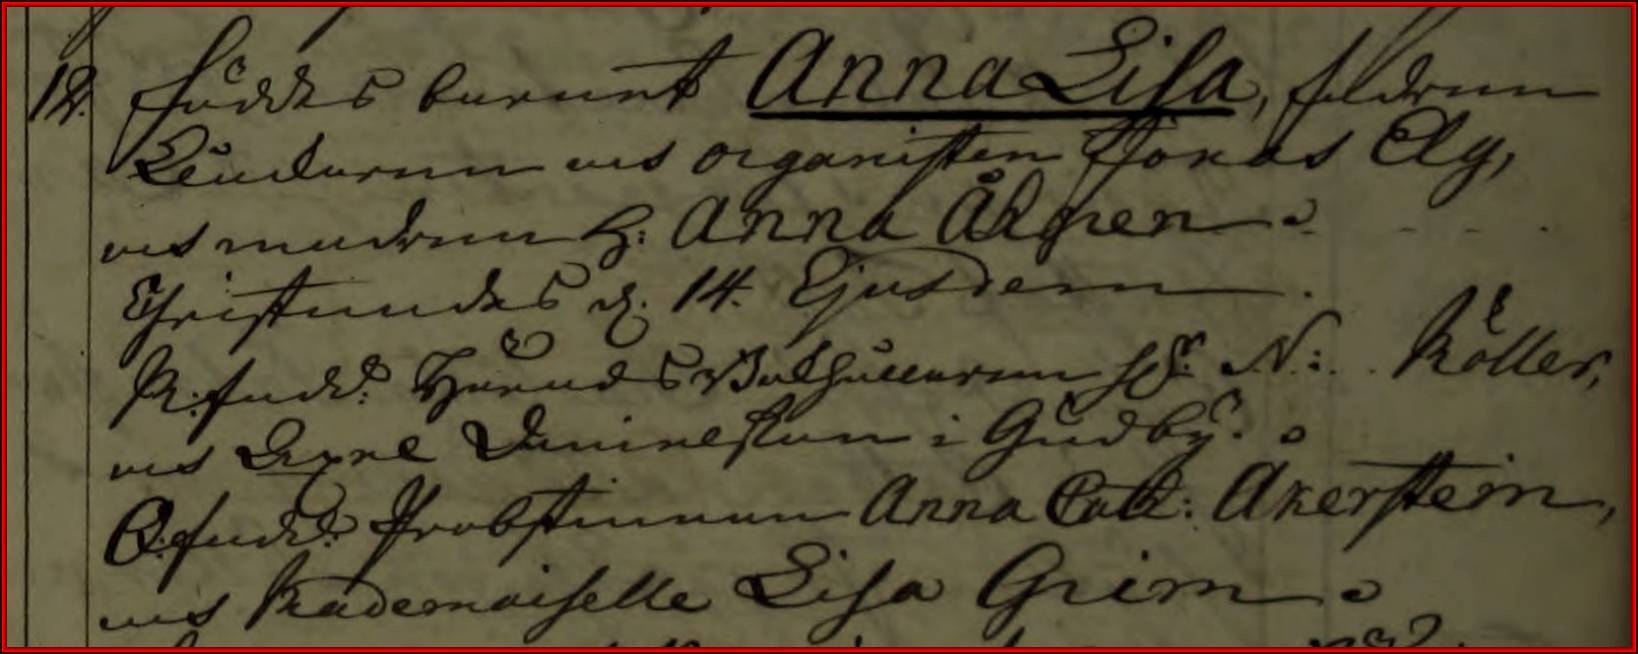 12. föddes barnet Anna Lisa, fadren
Läraren och organisten Jonas Elg,
och modren H: Anna Ålgren.
Christnades d. 14. Ejusdem.
M. fadd: Häradshöfdingen N: Köller,
och Axel Danielsson i Gudby.
Q. fadd: Probstinnan Anna Cath: Akerstein,
och Mademoiselle Lisa Grim.